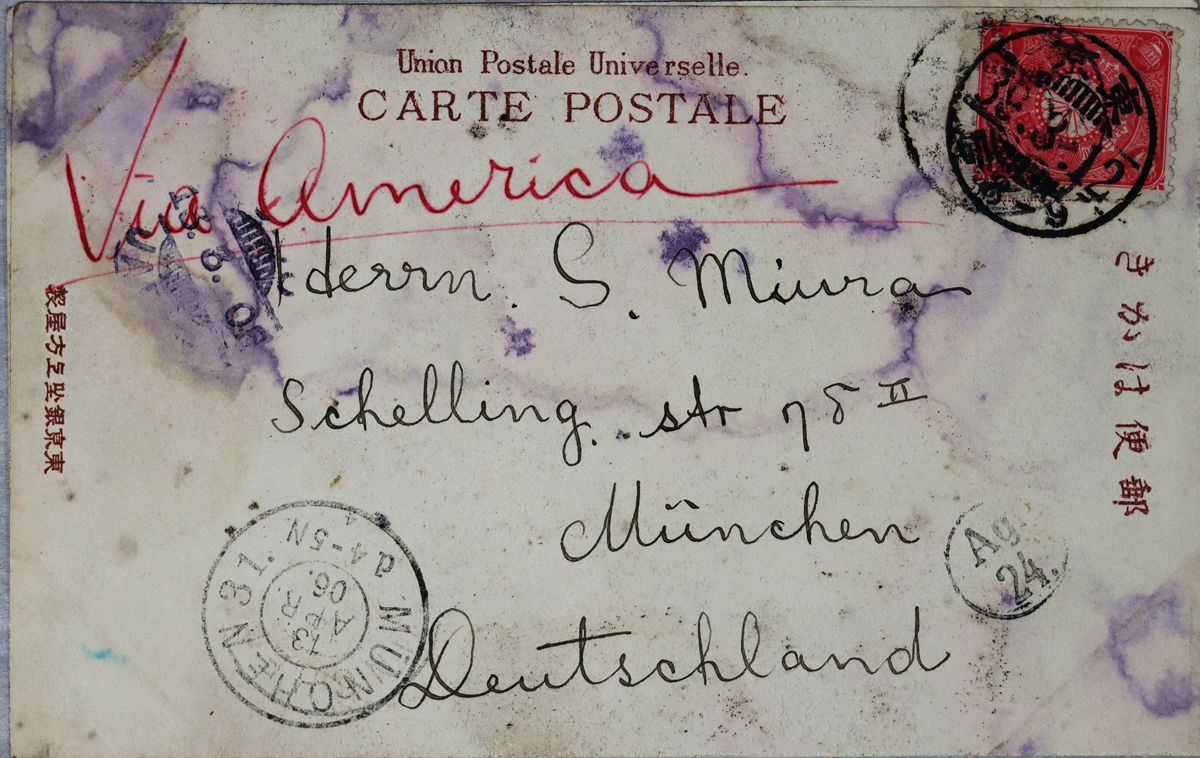 Union Postale Universelle.
CARTE POSTALE
Via America
Herrn. S. Miura
Schelling. str 75 II
München
Deutschland
郵便はかき
東京銀坐上方屋製
東京
MÜNCHEN 31.
APR.
06.
4-5N
Ag.
24.